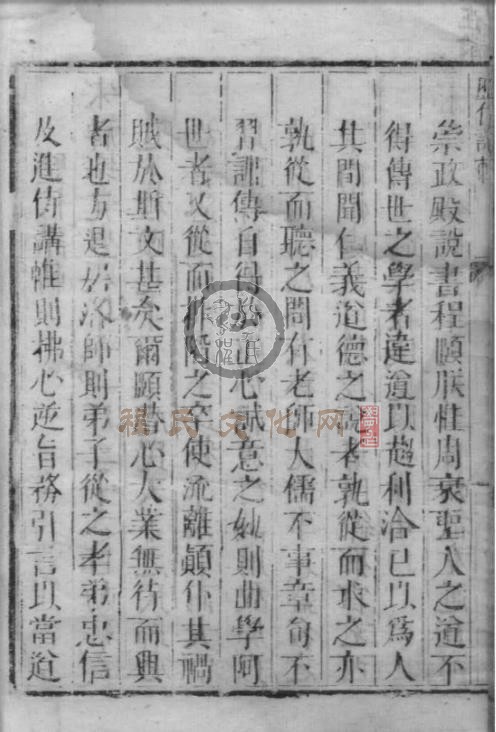 崇政殿說書程頤朕惟周衰聖人之道不
得傳世之學者違道以趨利洽已以爲人
其間聞仁義道德之說者孰從而求之亦
孰從而聽之間有老師大儒不事章句不
習訓傳自得於正心誠意之妙則曲學阿
世者又從而擠陷之卒使流離顛仆其禍
賊於斯文甚矣爾頤潛心大業無待而興
者也方退居洛師則弟子從之孝弟忠信
及進侍講帷則拂心逆旨務引言以當道
程氏文化网